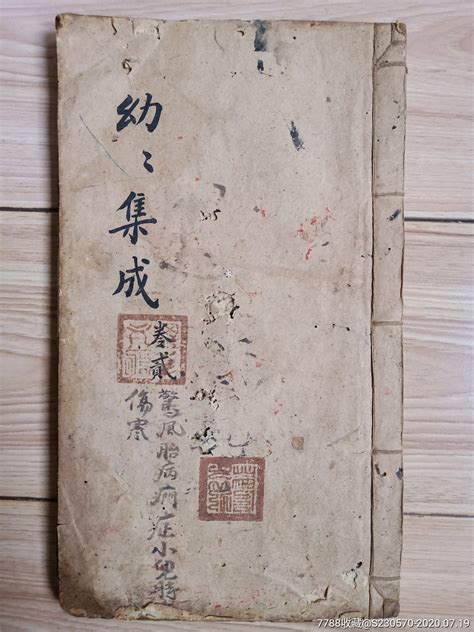 幼〻集成
卷貳
驚風胎病痾症小兒
傷寒
7788收藏@S230570-2020.07.19